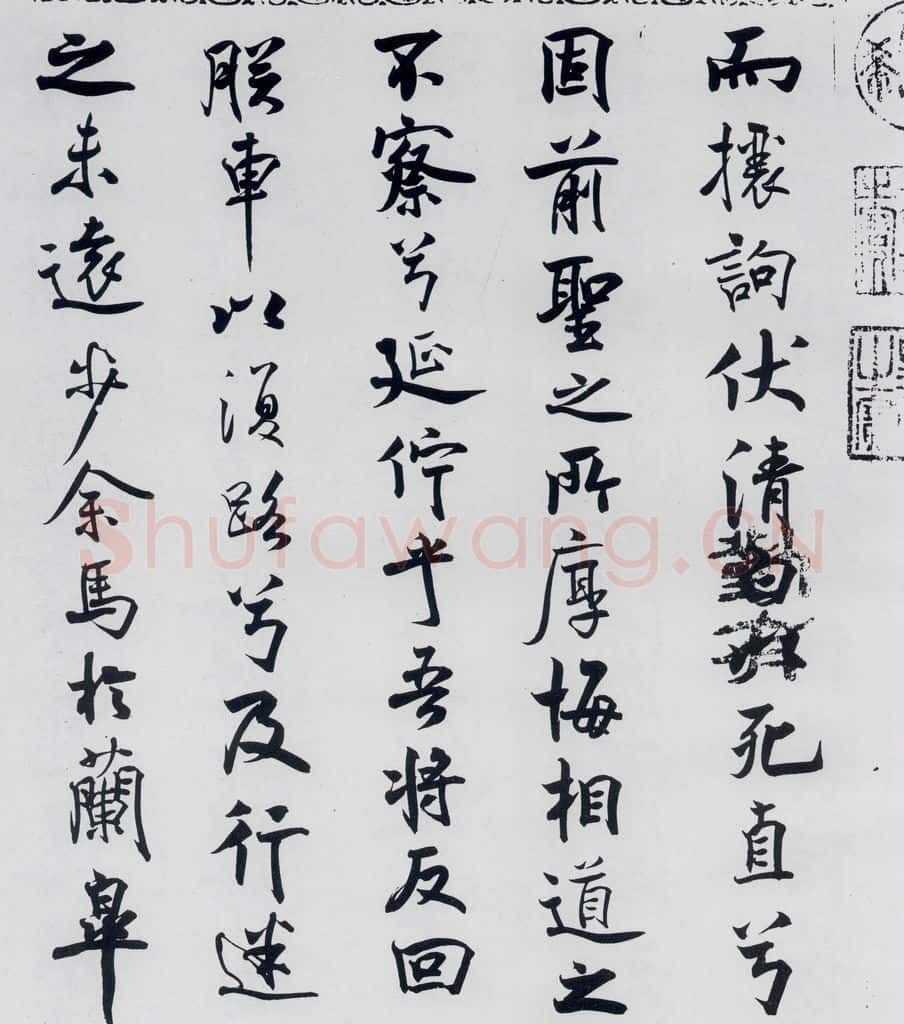 而攘訽伏清死直兮
固前聖之所厚悔相道之
不察兮延佇乎吾将反回
朕車以湏路兮及行迷
之未遠步余馬於蘭皐
Shufawang.CN